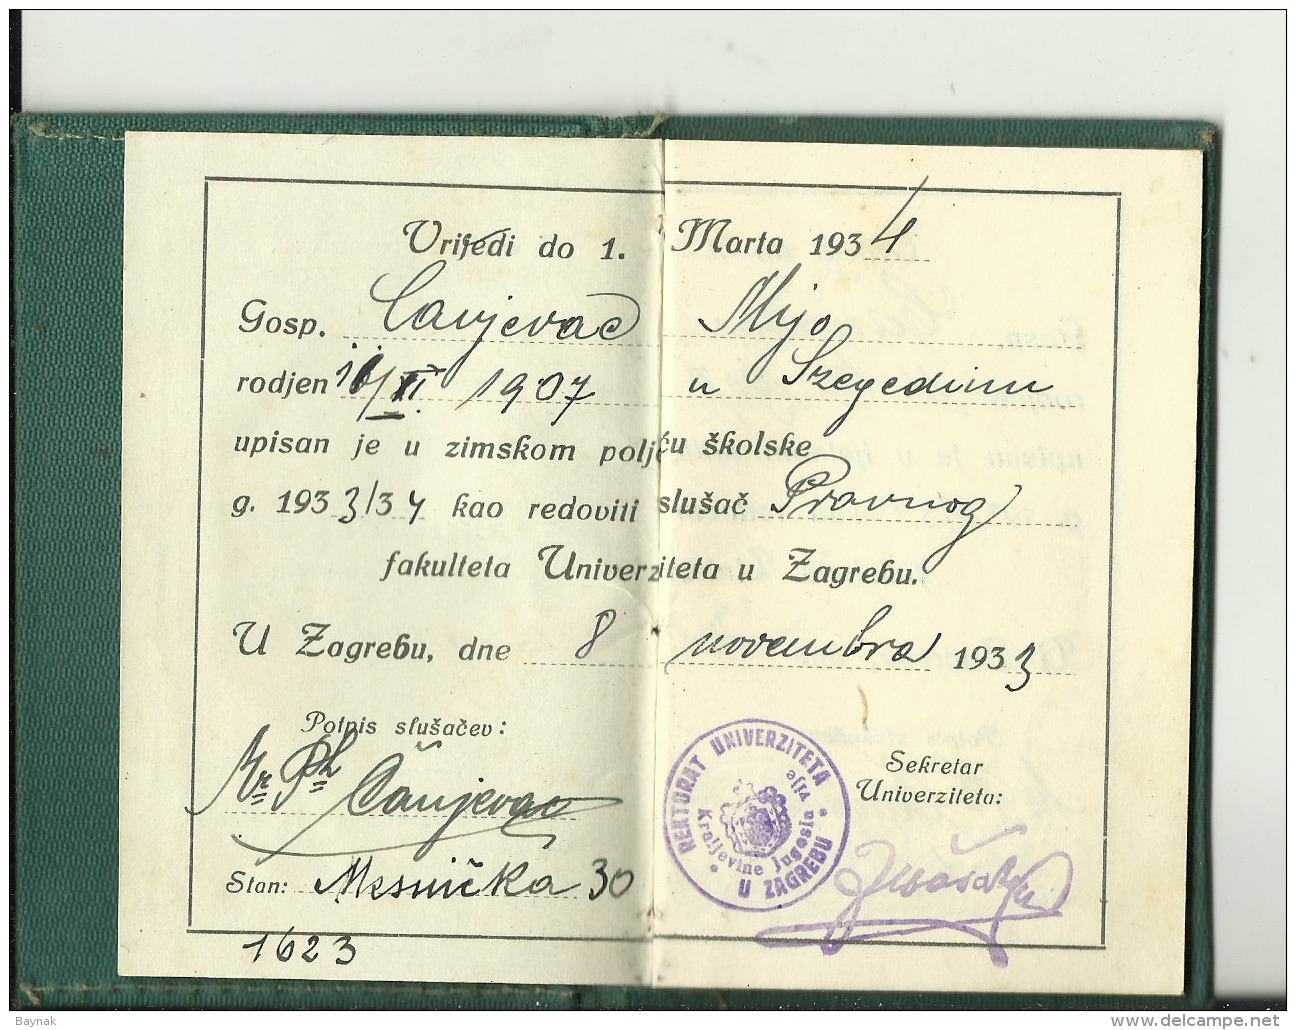 Vrijedi do 1. Marta 1934
Gosp. Čavjevac Mijo
rodjen 16/XI. 1907 u Szegedinu
upisan je u zimskom poljću školske
g. 1933/34 kao redoviti slušač Pravnog
fakulteta Univerziteta u Zagrebu.
U Zagrebu, dne 8 novembra 1933
Potpis slušačev:
Mr Ph Čavjevac
Stan: Mesnička 30
1623
REKTORAT UNIVERZITETA
U ZAGREBU
Kraljevine Jugoslavije
Sekretar
Univerziteta:
Baynak
www.delcampe.net